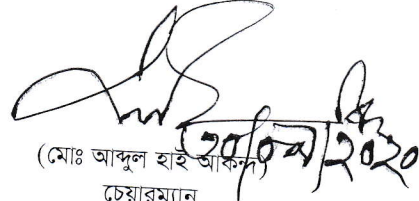 ৩০/০৯/২০২০
(মোঃ আব্দুল হাই আকন্দ)
চেয়ারম্যান